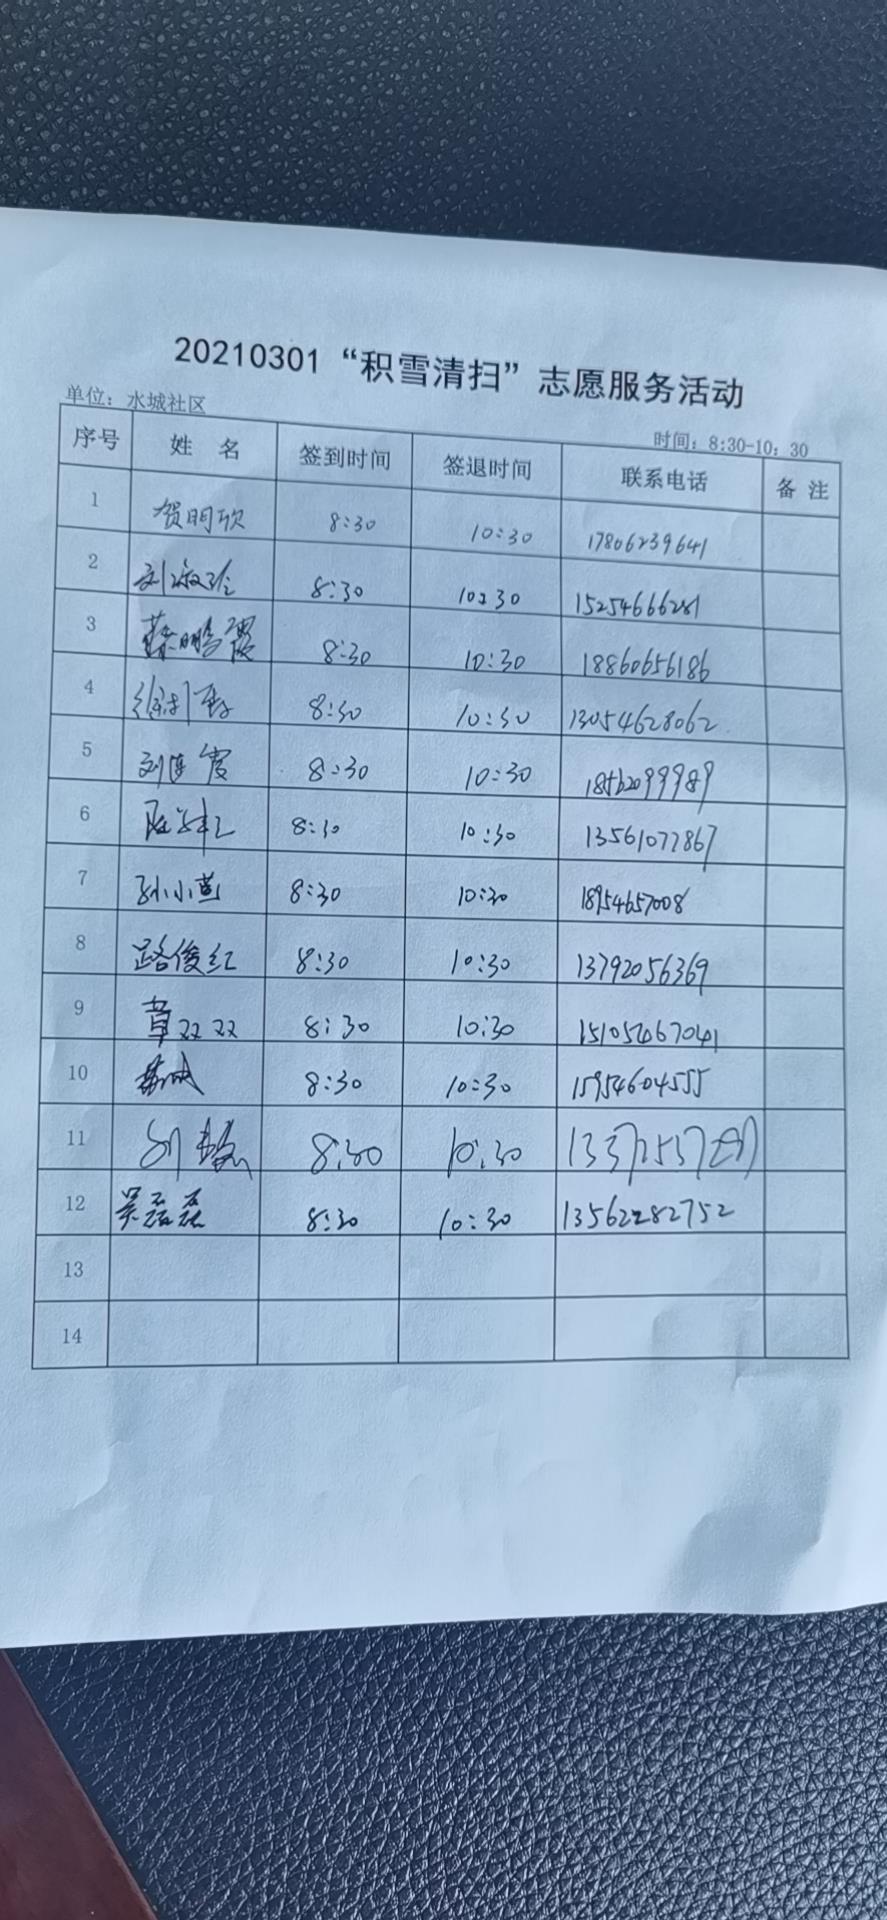 20210301“积雪清扫”志愿服务活动
单位：水城社区
时间：8:30-10：30
序号 姓 名 签到时间 签退时间 联系电话 备 注
1 贺明欣 8:30 10:30 17806239641
2 刘 8:30 10:30 15254666281
3 鹏霞 8:30 10:30 18860656186
4 徐 8:30 10:30 13054628062
5 刘连霞 8:30 10:30 18562099989
6 8:30 10:30 13561077867
7 孙小燕 8:30 10:30 18954657008
8 路俊红 8:30 10:30 13792056369
9 章双双 8:30 10:30 15105467041
10 8:30 10:30 15954604555
11 8:30 10:30
12 吴磊磊 8:30 10:30 13562282752
13
14